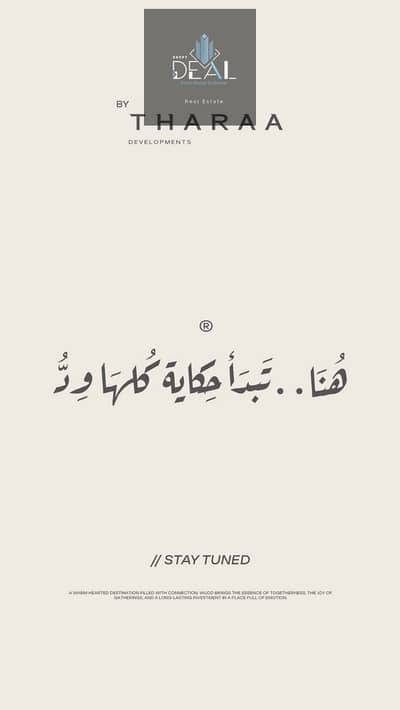 EGYPT
DEAL
Real Estate
BY
THARAA
DEVELOPMENTS
®
هُنَا..تَبدَأ حِكاية كُلهَا وِدُّ
// STAY TUNED
A WARM-HEARTED DESTINATION FILLED WITH CONNECTION, WUDD BRINGS THE ESSENCE OF TOGETHERNESS, THE JOY OF
GATHERINGS, AND A LONG-LASTING INVESTMENT IN A PLACE FULL OF EMOTION.